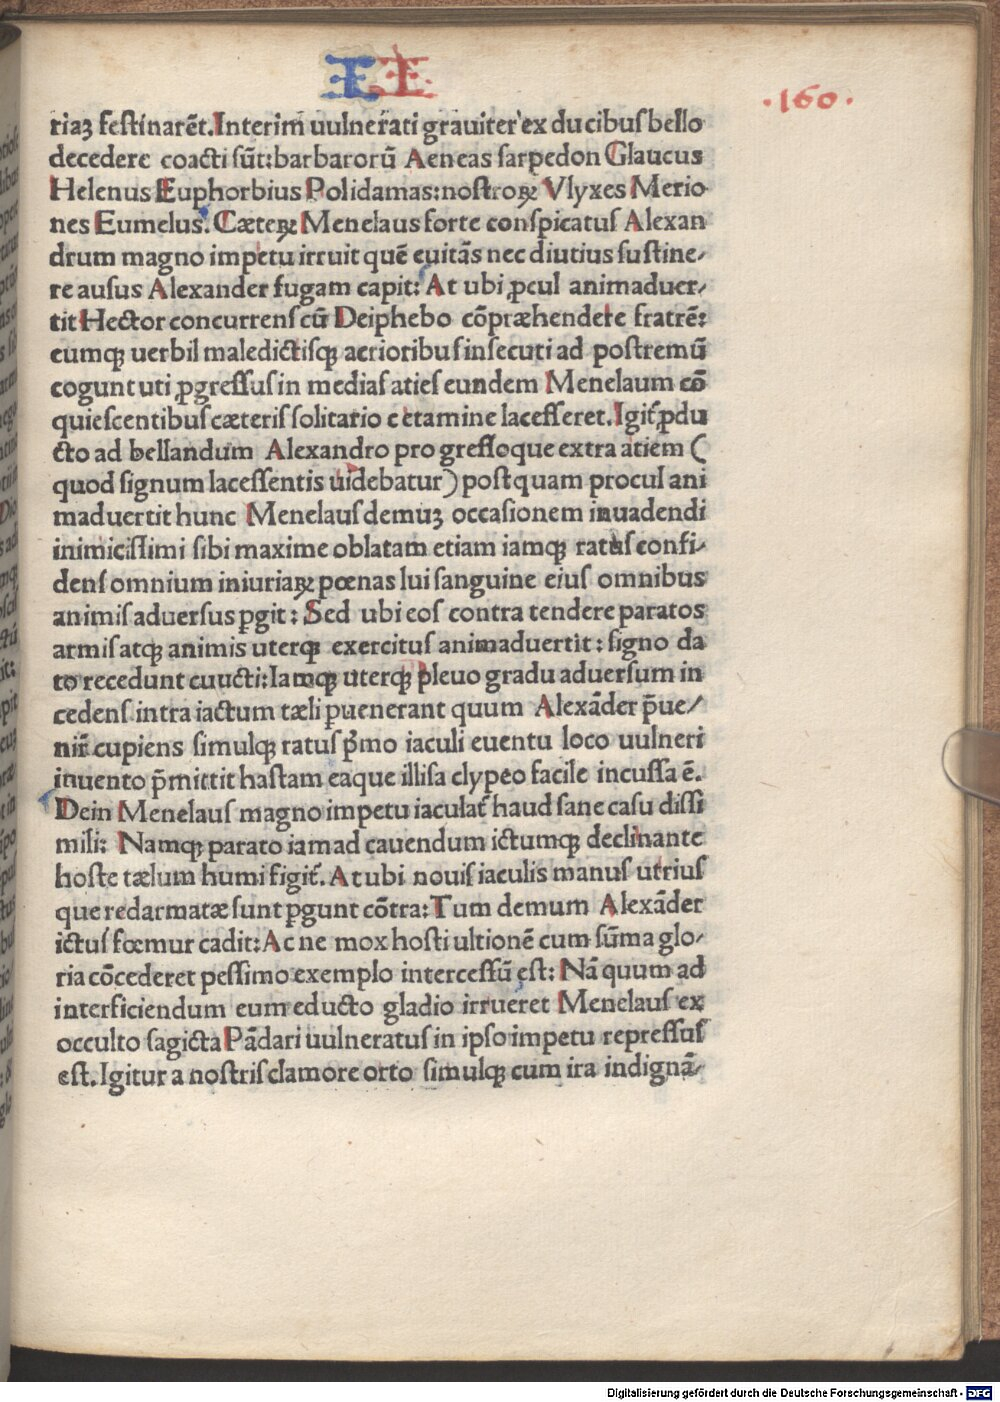 II
·160·
riaꝫ festinarēt. Interim uulnerati grauiter ex ducibus bello
decedere coacti sūt: barbarorū Aeneas sarpedon Glaucus
Helenus Euphorbius Polidamas: nostroꝝ Vlyxes Merio
nes Eumelus. Cæteꝝ Menelaus forte conspicatus Alexan
drum magno impetu irruit quē euitās nec diutius sustine⸗
re ausus Alexander fugam capit: At ubi ꝓcul animaduer⸗
tit Hector concurrens cū Deiphebo cōpræhendere fratrē:
eumqꝫ uerbil maledictisqꝫ acrioribus insecuti ad postremū
cogunt uti ꝓgressus in medias aties eundem Menelaum cō
quiescentibus cæteris solitario cētamine lacesseret. Igit̃ ꝓdu
cto ad bellandum Alexandro progressoque extra atiem (
quod signum lacessentis uidebatur) postquam procul ani
maduertit hunc Menelaus demuꝫ occasionem inuadendi
inimicissimi sibi maxime oblatam etiam iamqꝫ ratus confi⸗
dens omnium iniuriaꝝ pœnas lui sanguine eius omnibus
animis aduersus ꝑgit: Sed ubi eos contra tendere paratos
armis atqꝫ animis uterqꝫ exercitus animaduertit: signo da
to recedunt cuucti: Iamqꝫ uterqꝫ pleuo gradu aduersum in
cedens intra iactum tæli ꝑuenerant quum Alexāder p̄ue⸗
nir̄ cupiens simulqꝫ ratus pͥmo iaculi euentu loco uulneri
inuento p̄mittit hastam eaque illisa clypeo facile incussa ē.
Dein Menelaus magno impetu iaculat̃ haud sane casu dissi
mili: Namqꝫ parato iam ad cauendum ictumqꝫ declinante
hoste tælum humi figit̃. At ubi nouis iaculis manus utrius
que redarmatæ sunt ꝑgunt cōtra: Tum demum Alexāder
ictus fœmur cadit: Ac ne mox hosti ultionē cum sūma glo⸗
ria cōcederet pessimo exemplo intercessū est: Nā quum ad
interficiendum eum educto gladio irrueret Menelaus ex
occulto sagicta Pādari uulneratus in ipso impetu repressus
est. Igitur a nostris clamore orto simulqꝫ cum ira indignā⸗
Digitalisierung gefördert durch die Deutsche Forschungsgemeinschaft - DFG